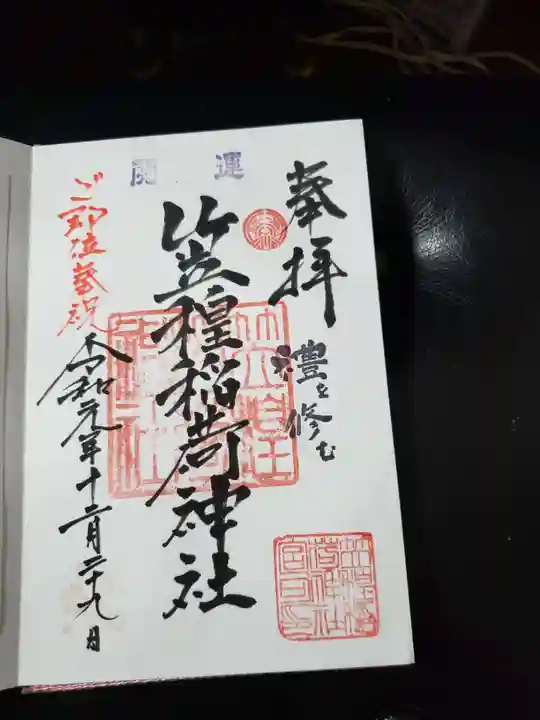 開運
奉拝
禮を修む
笠𥓙稲荷神社
ご即位奉祝
令和元年十二月二十九日